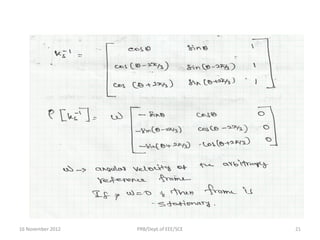 Ks⁻¹ = [ cosθ sinθ 1
cos(θ-2π/3) sin(θ-2π/3) 1
cos(θ+2π/3) sin(θ+2π/3) 1 ]
P[Ks⁻¹] = ω [ -sinθ cosθ 0
-sin(θ-2π/3) cos(θ-2π/3) 0
-sin(θ+2π/3) cos(θ+2π/3) 0 ]
ω → angular velocity of the arbitrary
reference frame.
If, ω=0, then frame is
stationary.
16 November 2012 PRB/Dept of EEE/SCE 11